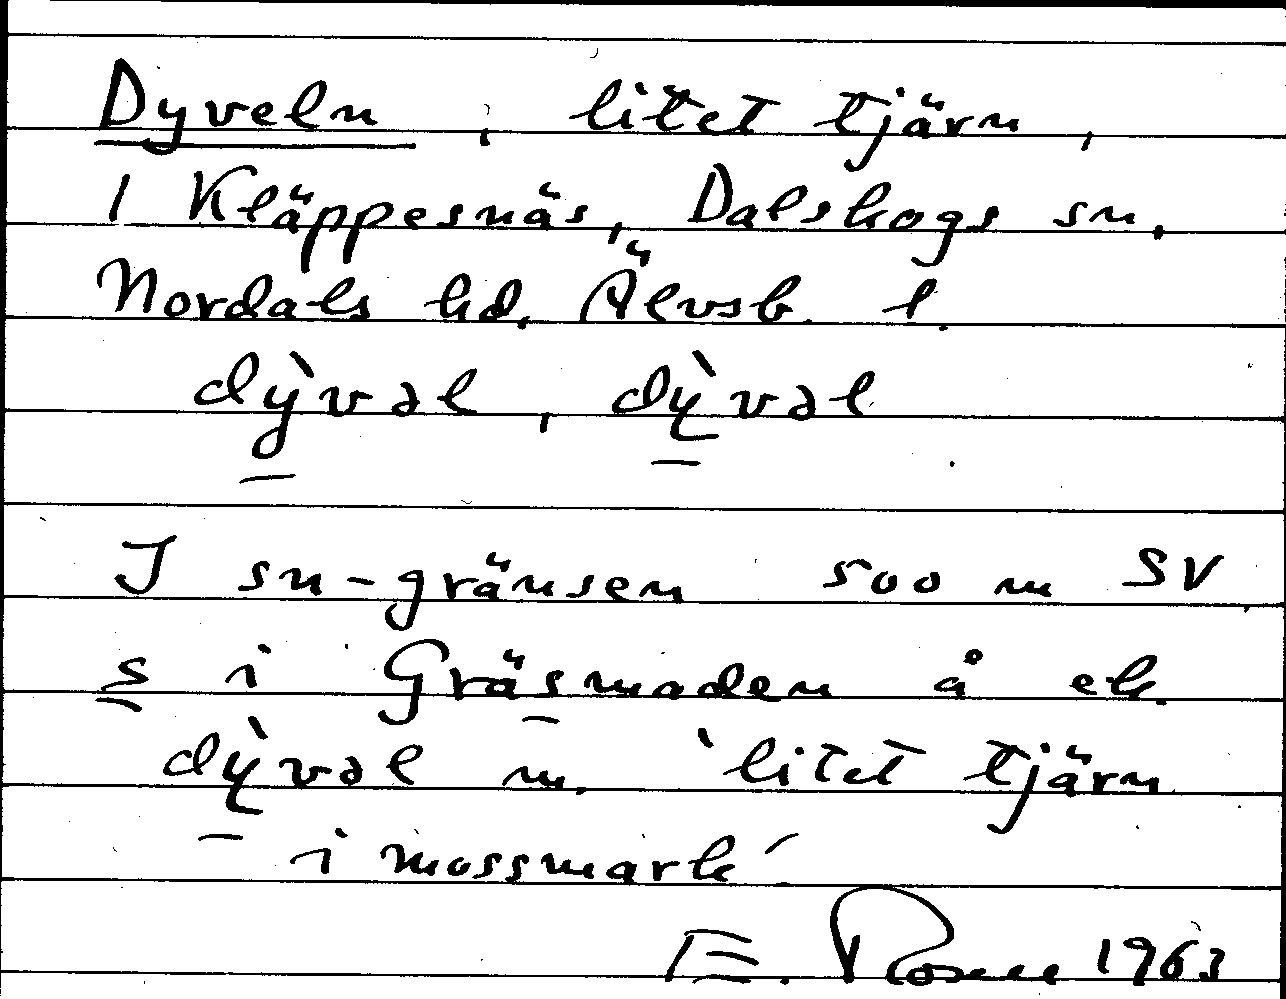 Dyveln, litet tjärn,
1 Kläppesnäs, Dalskogs sn,
Nordals hd, Älvsb. l.
dỳ̠vəl, dỳ̠vəl
I sn-gränsen 500 m SV
s̠ i Gräsmaden å ek.
dỳ̠vəl m. `litet tjärn
i mossmark´
E. 1963